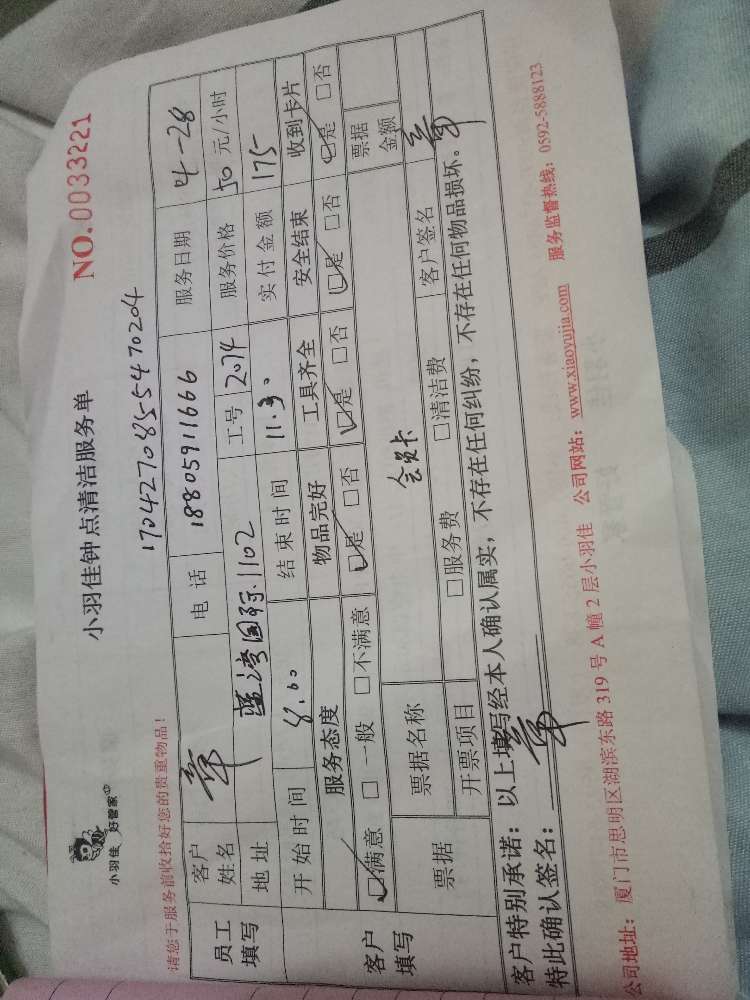 小羽佳 好管家
小羽佳钟点清洁服务单
NO.0033221
请您于服务前收拾好您的贵重物品!
170427085-5470204
员工填写 客户姓名 章 电话 18805911666 服务日期 4-28
地址 蓝湾国际.1102 工号 2074 服务价格 50 元/小时
开始时间 8.00 结束时间 11.30 实付金额 175
客户填写 服务态度 物品完好 工具齐全 安全结束 收到卡片
☑满意 □一般 □不满意 ☑是 □否 ☑是 □否 ☑是 □否 ☑是 □否
票据 票据名称 会员卡 票据金额
开票项目 □服务费 □清洁费 客户签名 章
客户特别承诺:以上填写经本人确认属实,不存在任何纠纷,不存在任何物品损坏。
特此确认签名: 章
公司地址:厦门市思明区湖滨东路 319 号 A 幢 2 层小羽佳 公司网站:www.xiaoyujia.com 服务监督热线:0592-5888123